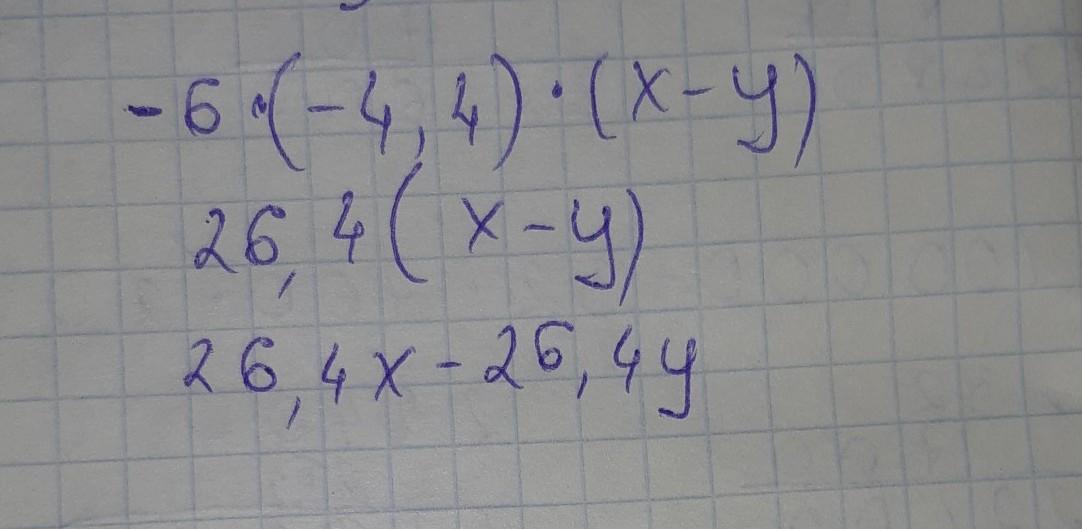 -6·(-4,4)·(x-y)
26,4(x-y)
26,4x-26,4y